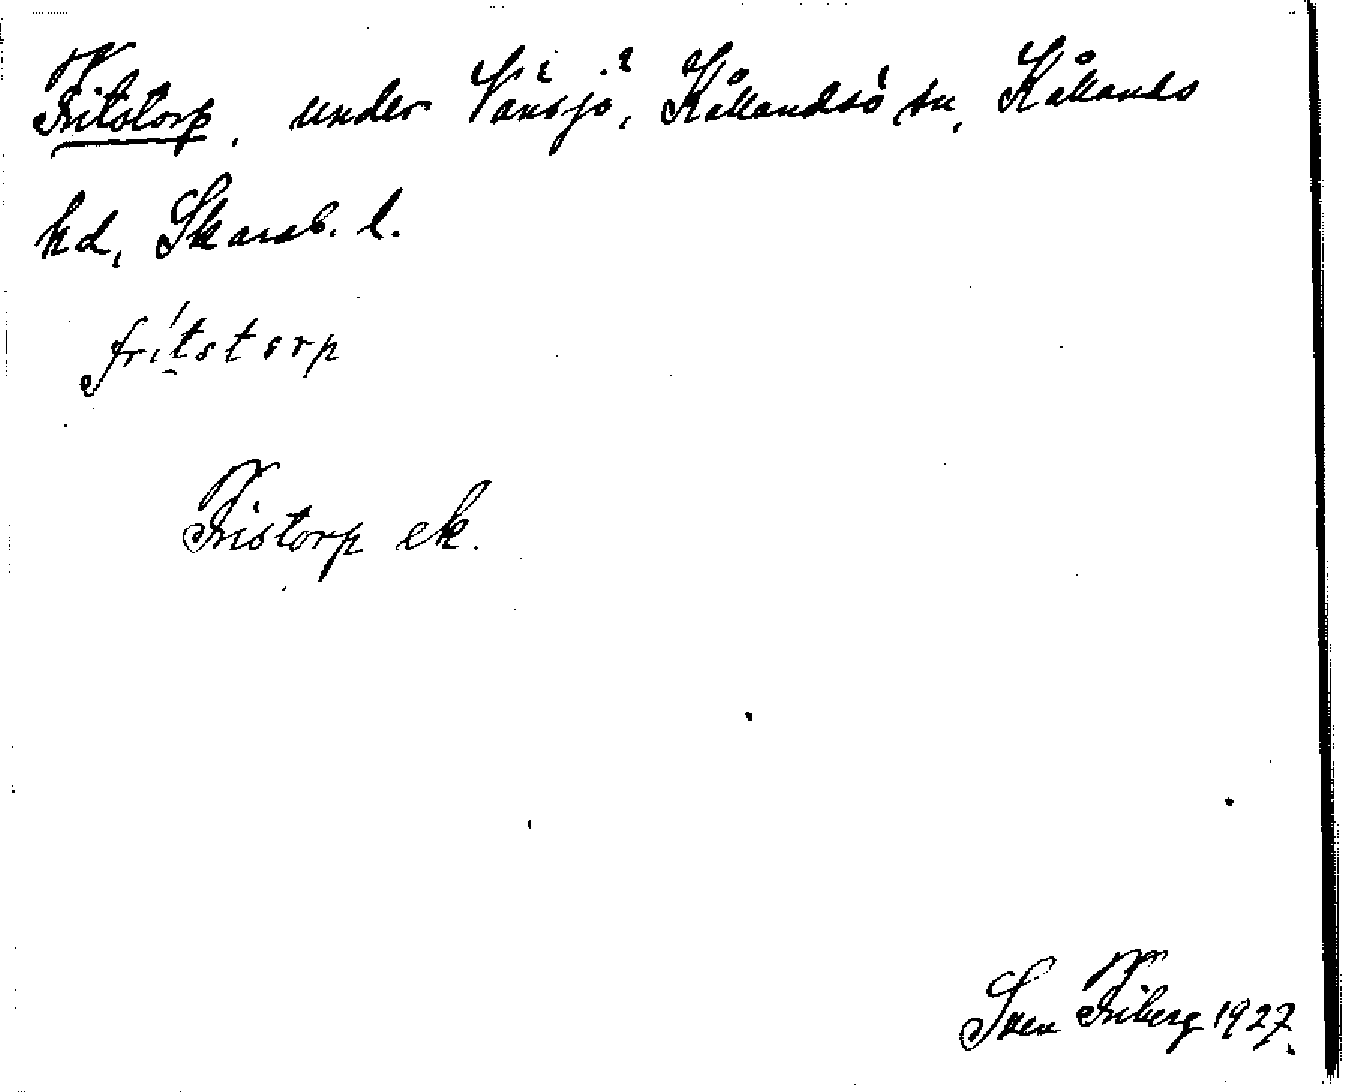 Fritstorp, under Vänsjö, Kållandsö sn, Kållands
hd, Skarab. l.
fritstorp
Fristorp ek.
Sven Friberg 1927.